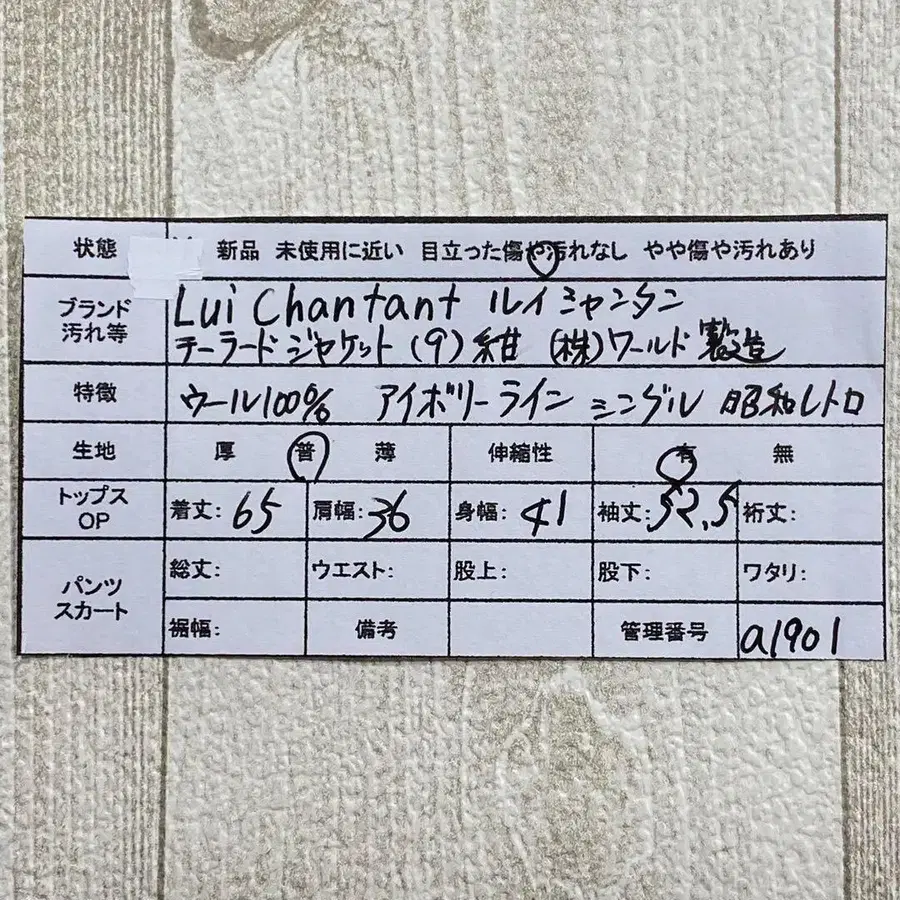 状態 新品 未使用に近い 目立った傷や汚れなし やや傷や汚れあり
ブランド 汚れ等 Lui Chantant ルイシャンタン
テーラードジャケット (9) 紺 (株)ワールド製造
特徴 ウール100% アイボリーライン シングル 昭和レトロ
生地 厚 普 薄 伸縮性 有 無
トップス OP 着丈: 65 肩幅: 36 身幅: 41 袖丈: 52.5 裄丈:
パンツ スカート 総丈: ウエスト: 股上: 股下: ワタリ:
裾幅: 備考 管理番号 a1901